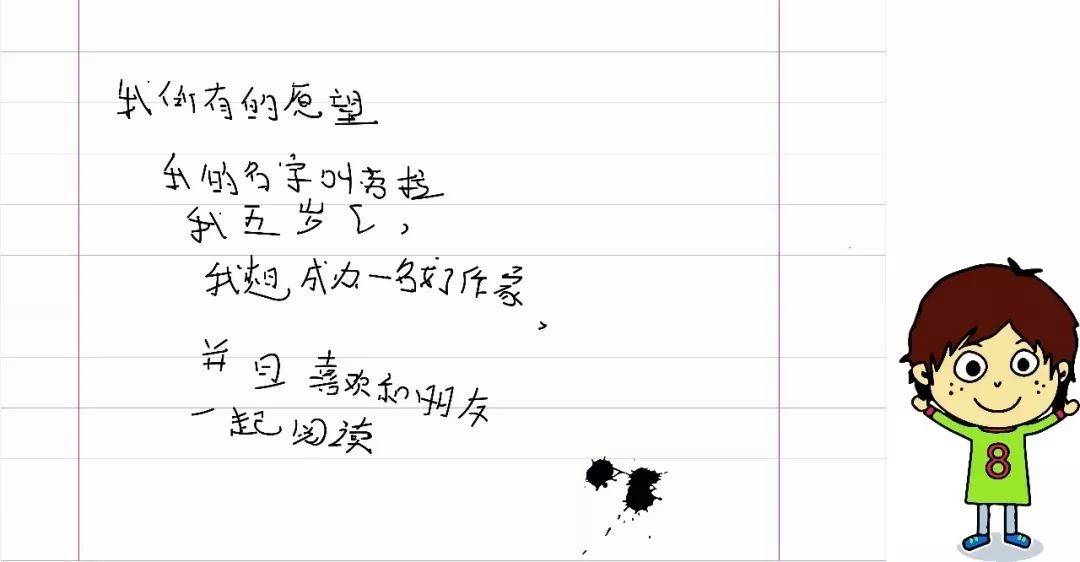 我所有的愿望
我的名字叫考拉
我五岁了,
我想成为一名好作家,
并且喜欢和朋友
一起阅读
8